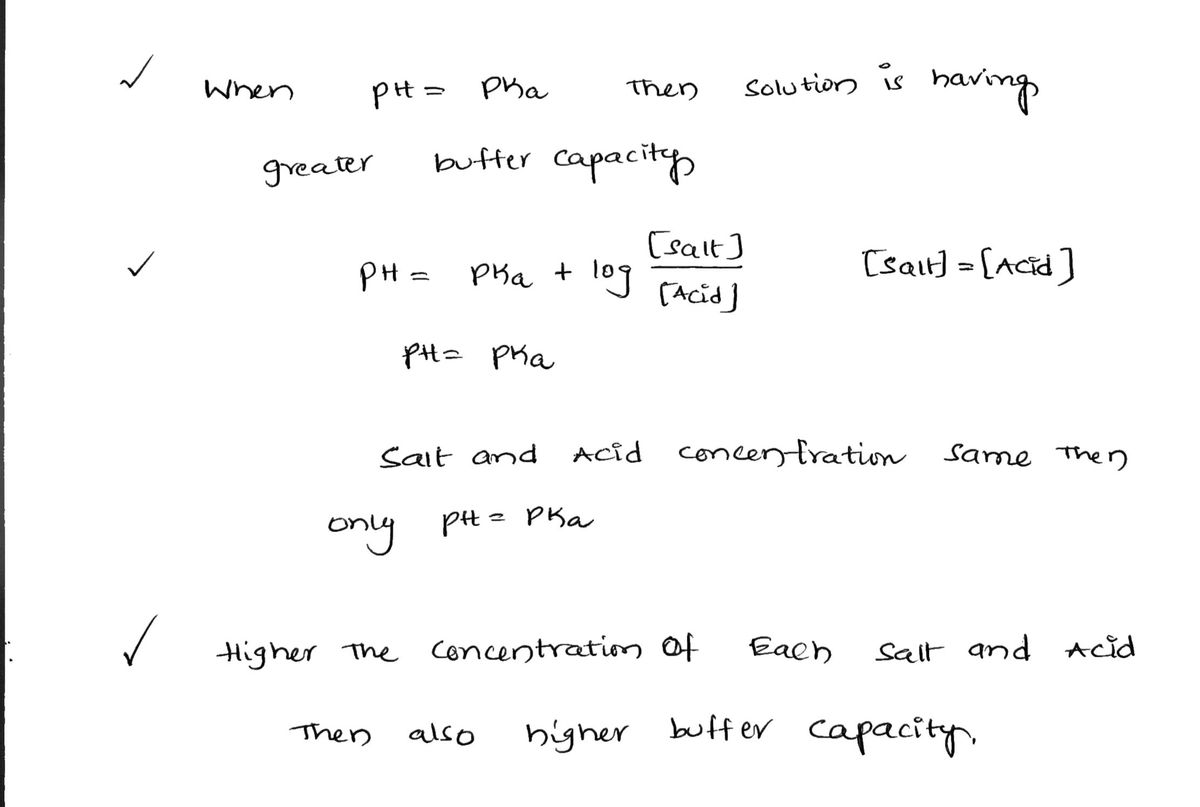 ✓ When pH = PKa Then Solution is having
greater buffer capacity
✓ PH = PKa + log [Salt] / [Acid] [Salt] = [Acid]
PH = PKa
Salt and Acid concentration same Then
only pH = PKa
✓ Higher The Concentration Of Each Salt and Acid
Then also higher buffer capacity.